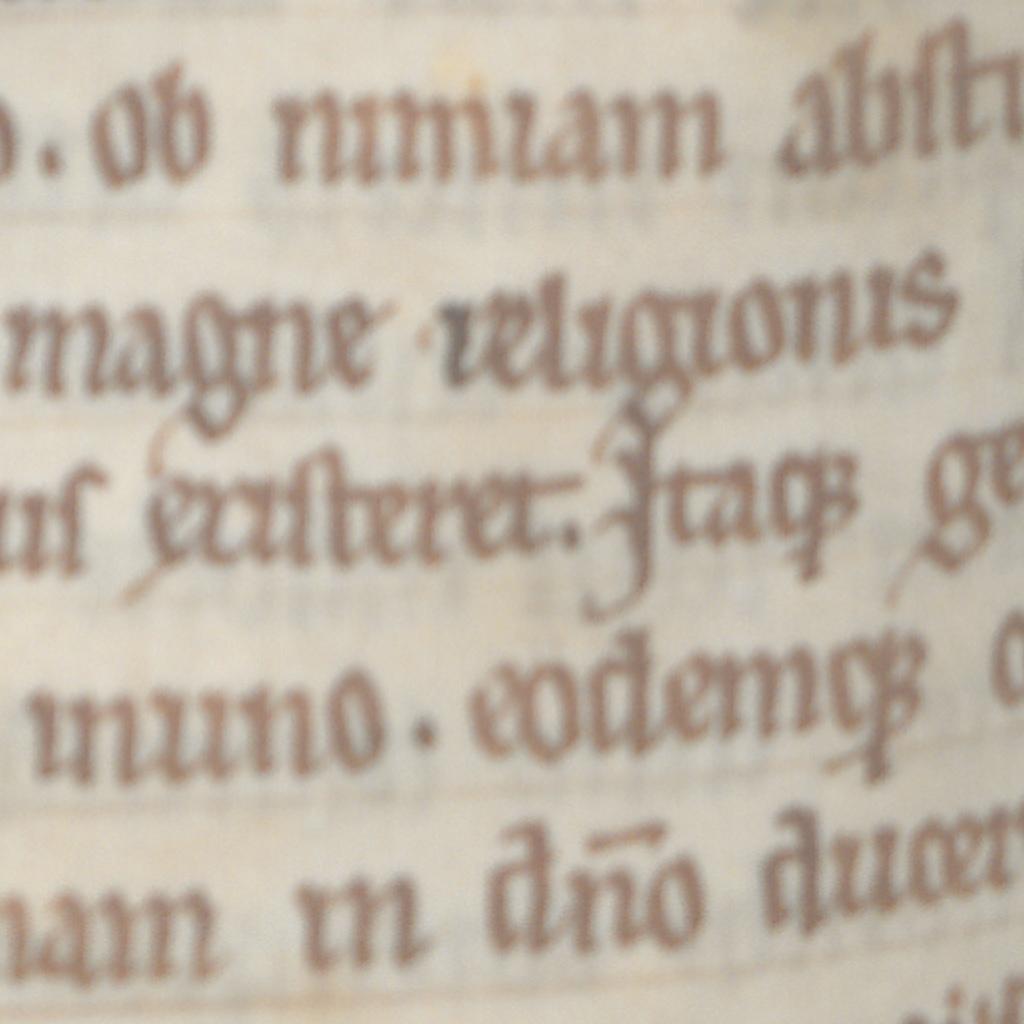 . ob nimiam abstu
magne religionis
us existeret. Itaqꝫ ge
inuno. eodemqꝫ
nam in dn̄o ducer